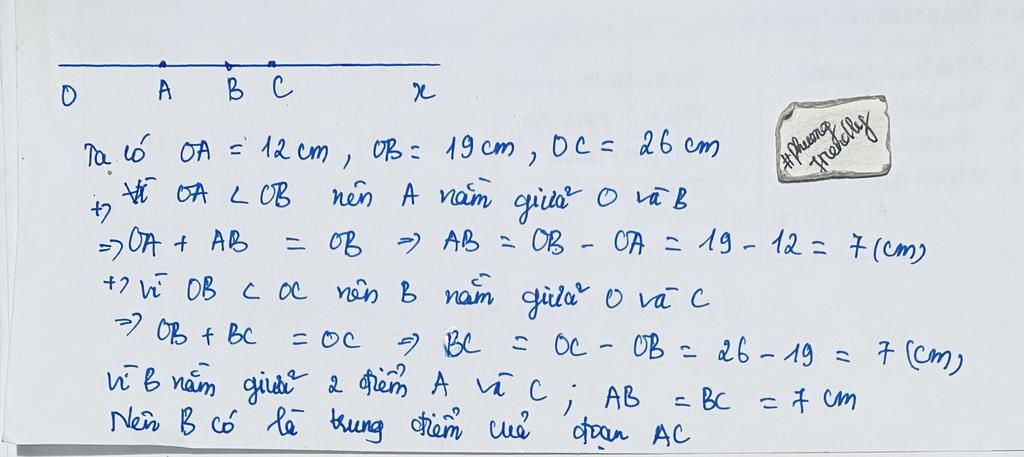 O A B C x
Ta có OA = 12 cm, OB = 19 cm, OC = 26 cm
#phuong
friendly
+) Vì OA < OB nên A nằm giữa O và B
=> OA + AB = OB => AB = OB - OA = 19 - 12 = 7 (cm)
+) Vì OB < OC nên B nằm giữa O và C
=> OB + BC = OC => BC = OC - OB = 26 - 19 = 7 (cm)
Vì B nằm giữa 2 điểm A và C; AB = BC = 7 cm
Nên B có là trung điểm của đoạn AC